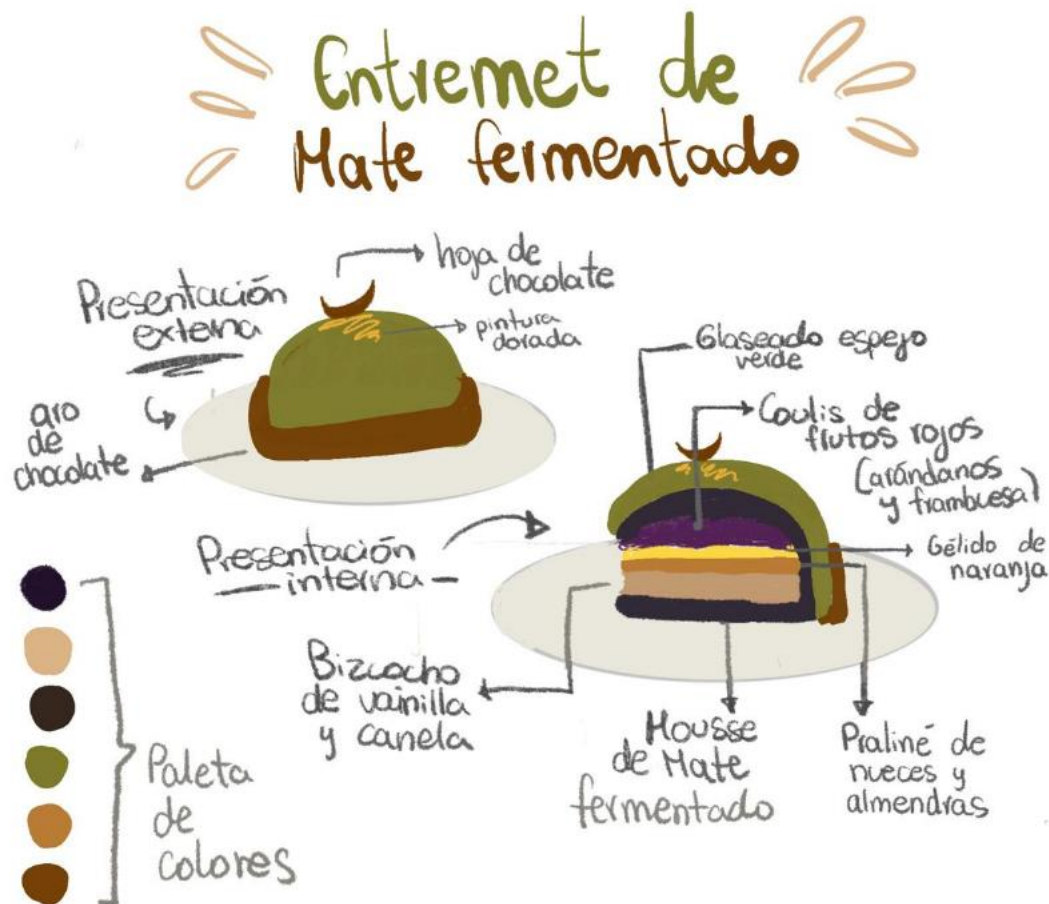 Entremet de
Mate fermentado
Presentación
externa
hoja de
chocolate
pintura
dorada
aro
de
chocolate
Glaseado espejo
verde
Coulis de
frutos rojos
(arándanos
y frambuesa)
Gélido de
naranja
Presentación
interna
Bizcocho
de vainilla
y canela
Mousse
de Mate
fermentado
Praliné de
nueces y
almendras
Paleta
de
colores